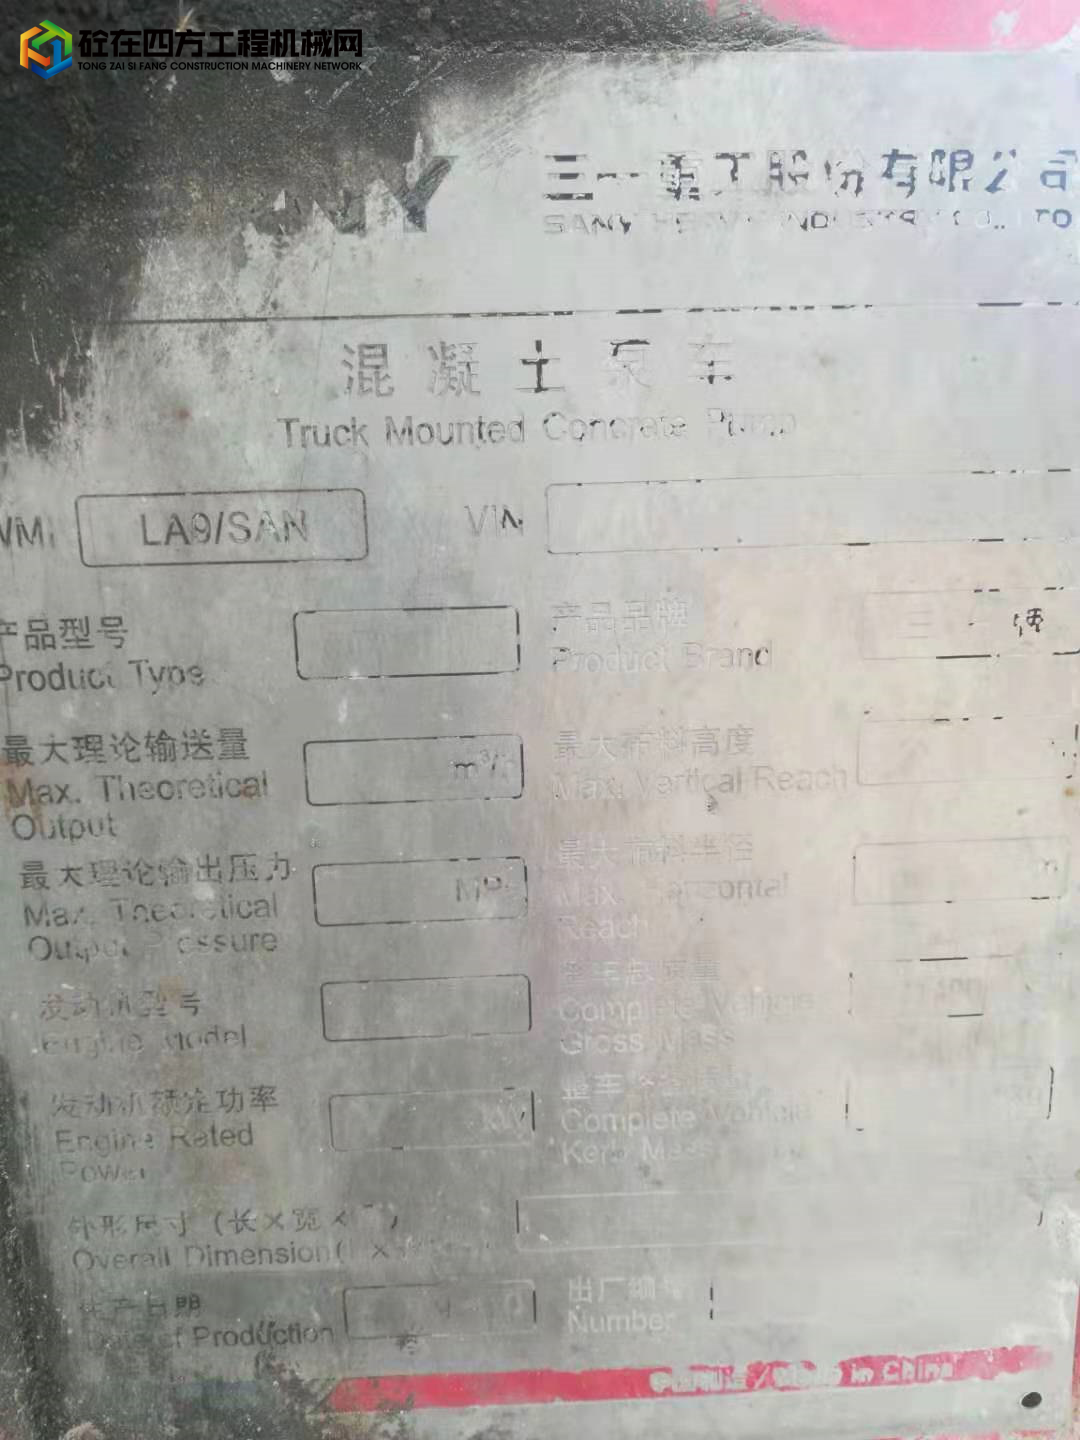 砼在四方工程机械网
TONG ZAI SI FANG CONSTRUCTION MACHINERY NETWORK
三一重工股份有限公司
SANY HEAVY INDUSTRY CO., LTD
混凝土泵车
Truck Mounted Concrete Pump
WMI LA9/SAN VIN
产品型号 产品品牌
Product Type Product Brand
最大理论输送量 m³/h 最大布料高度
Max. Theoretical Max. Vertical Reach
Output
最大理论输出压力 MPa 最大布料半径 m
Max. Theoretical Max. Horizontal
Output Pressure Reach
发动机型号 整车总质量
Engine Model Complete Vehicle
Gross Mass
发动机额定功率 kW 整车
Engine Rated Complete Vehicle
Power Kerb Mass
外形尺寸（长×宽×
Overall Dimension(
生产日期 出厂编号
Date of Production Number
Made in China